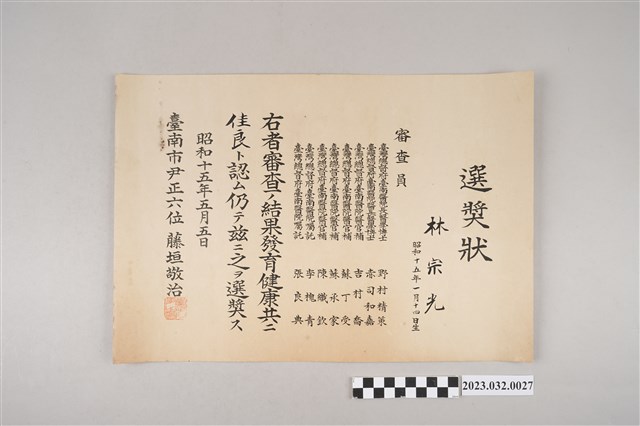 選奬狀
林宗光
昭和十五年一月十四日生
審查員
臺灣總督府臺南醫院長醫學博士 野村精策
臺灣總督府臺南醫院醫長醫學博士 赤司和嘉
臺灣總督府臺南醫院醫官補 吉村喬
臺灣總督府臺南醫院醫官補 蘇丁受
臺灣總督府臺南醫院醫官補 蘇承家
臺灣總督府臺南醫院醫官補 陳織欽
臺灣總督府臺南醫院囑託 李槐青
臺灣總督府臺南醫院囑託 張良典
右者審查ノ結果發育健康共ニ
佳良ト認ム仍テ茲ニ之ヲ選奬ス
昭和十五年五月五日
臺南市尹正六位 藤垣敬治
2023.032.0027